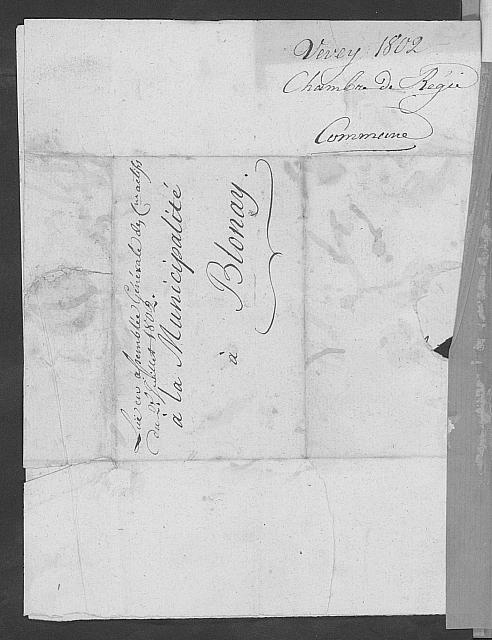 Vevey 1802
Chambre de Régie
Commune
Lue en assemblée Générale des
du Juillet 1802.
à la Municipalité
à
Blonay.